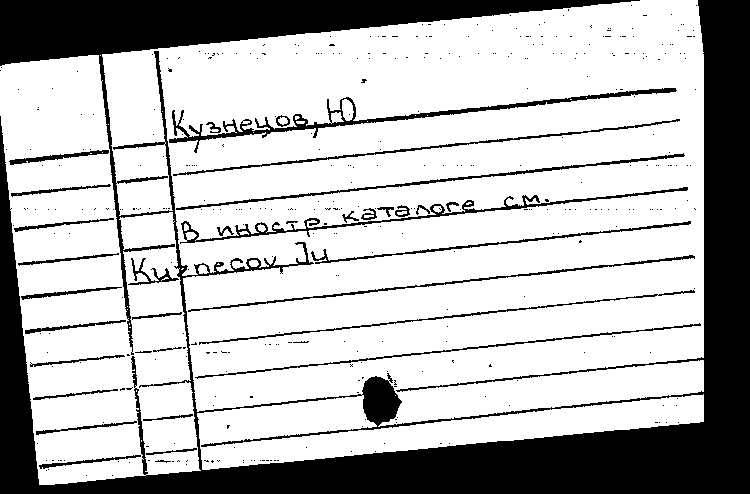 Кузнецов, Ю
В иностр. каталоге см.
Kuznecov, Ju